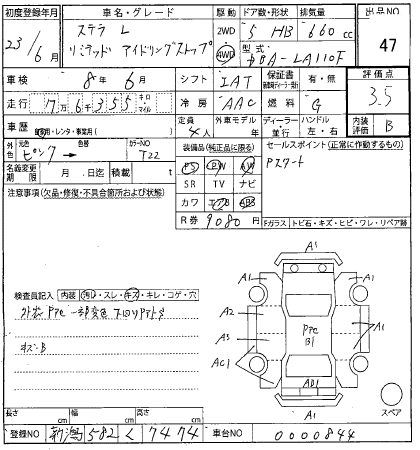 初度登録年月 車名・グレード 駆動 ドア数・形状 排気量 出品NO
23年 6月 ステラ L 2WD 5 HB 660cc 47
リミテッド アイドリングストップ 4WD 型式 DBA-LA110F
車検 8年 6月 シフト IAT 保証書 有・無 評価点
走行 7万6千355 キロ マイル 冷房 AAC 燃料 G 3.5
車歴 自家用・レンタ・事業用( ) 定員 4人 外車モデル 年 ディーラー・並行 ハンドル 左・右 内装評価 B
外色 元色 ピンク → 色替 カラーNO T22 装備品(純正品に限る) セールスポイント(正常に作動するもの)
名義変更期限 月 日迄 積載 t PS PW AW Pスタート
注意事項(欠品・修復・不具合箇所および状態) SR TV ナビ
カワ エアB ABS
R券 9080円 Fガラス トビ石・キズ・ヒビ・ワレ・リペア跡
A1
A1 A1
検査員記入 内装 汚れ・スレ・キズ・キレ・コゲ・穴
A2
外装Pアセ 一部変色 下回りサビ
A3 Pアセ B1 A1
キズ・B
AC1
AD1
A1 スペア
長さ cm 幅 cm 高さ cm
登録NO 新潟 582 く 7474 車台NO 0000844